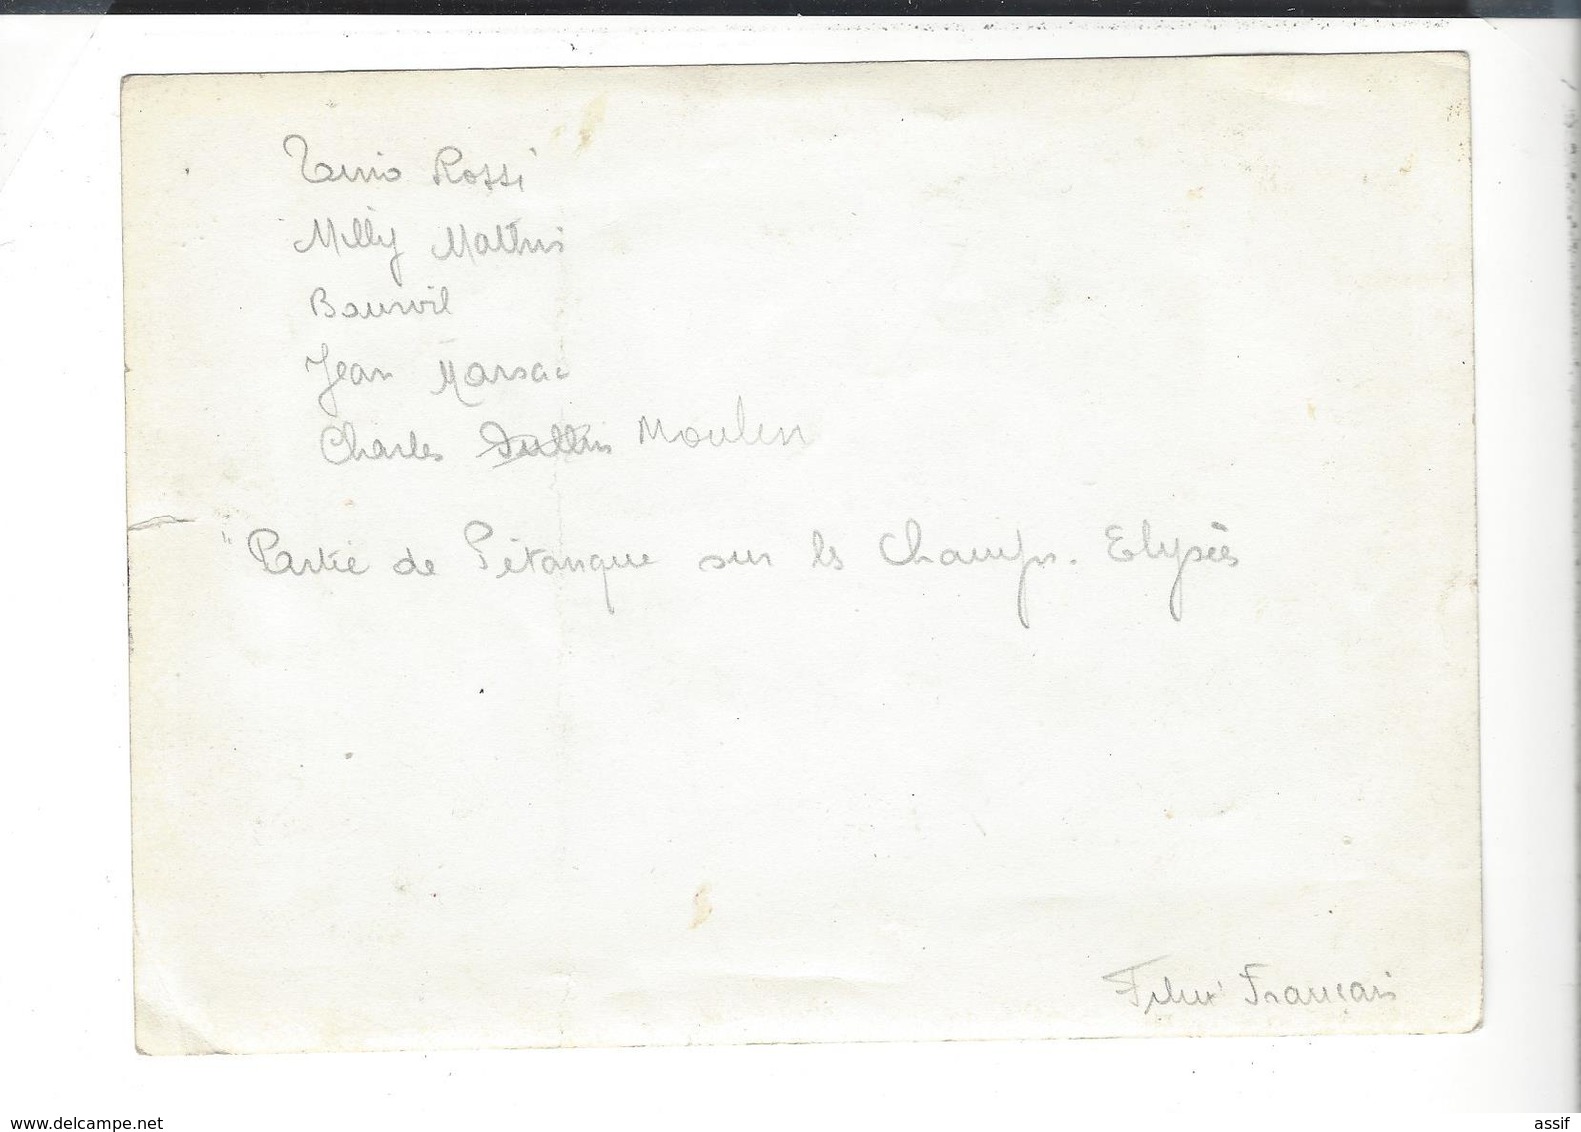 Tino Rossi
Milly Mathis
Bourvil
Jean Marsac
Charles Dullin Moulin
"Partie de Pétanque sur les Champs. Elysées
Félix Français
assif
delcampe.net